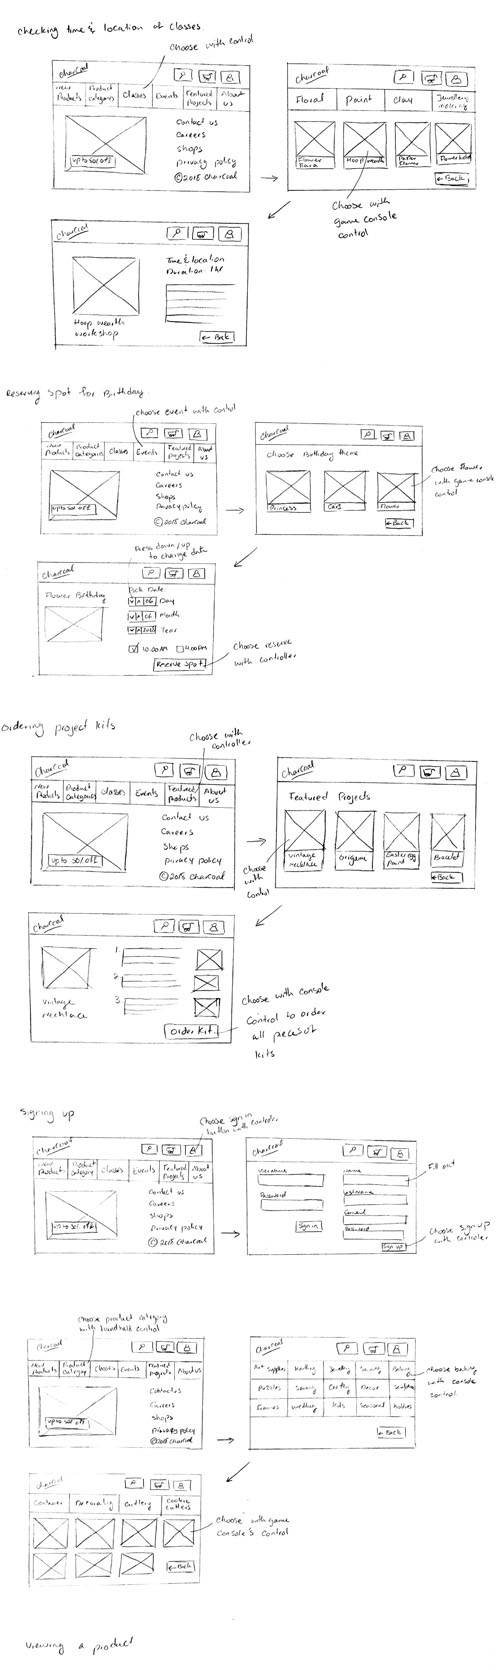 checking time & location of classes.
choose with control
Charcoal
New Products
Product Categories
Classes
Events
Featured Projects
About us
Contact us
Careers
Shops
privacy policy
©2018 Charcoal
up to 50% off
Charcoal
Floral
Paint
Clay
Jewellery making
Flower
Hoop wreath
← Back
Choose with
game console
control
Charcoal
Time & location
Duration 1hr
Hoop wreath
workshop
← Back
Reserving spot for Birthday
choose event with control
Charcoal
New Products
Product Categories
Classes
Events
Featured Projects
About us
Contact us
Careers
Shops
Privacy policy
©2018 Charcoal
up to 50% off
Charcoal
Choose Birthday theme
Princess
Cars
Flower
← Back
Choose flower
with game console
control
Press down/up
to change date
Charcoal
Flower Birthday
Pick Date
06 Day
06 Month
2018 Year
10:00AM
4:00PM
Reserve Spot
Choose reserve
with controller
ordering project kits
Choose with
controller
Charcoal
New Products
Product Categories
Classes
Events
Featured Products
About us
Contact us
Careers
Shops
privacy policy
©2018 Charcoal
up to 50% off
Charcoal
Featured Projects
vintage necklace
Origami
Easter egg paint
Bracelet
← Back
Choose
with
control
Charcoal
1
2
3
vintage
necklace
Order Kit
Choose with console
control to order
all peces of
kits
Signing up
Choose sign in
button with controler
Charcoal
New Product
Product Category
Classes
Events
Featured Projects
About us
Contact us
Careers
Shops
Privacy policy
©2018 Charcoal
up to 50% off
Charcoal
Username
Password
Sign in
name
Lastname
Email
Password
Sign up
Fill out
Choose sign up
with controler
Choose product category
with handheld control
Charcoal
New Products
Product Category
Classes
Events
Featured Projects
About us
Contact us
Careers
Shops
Privacy policy
©2018 Charcoal
up to 50% off
Charcoal
Art Supplies
Jewellery
Sewing
Baking
Crafting
Decor
Frames
wedding
kids
Seasonal
hobbies
← Back
choose baking
with console
control
Charcoal
Container
Decorating
Cutlery
Cookie Cutters
← Back
Choose with game
Console's Control
Viewing a product